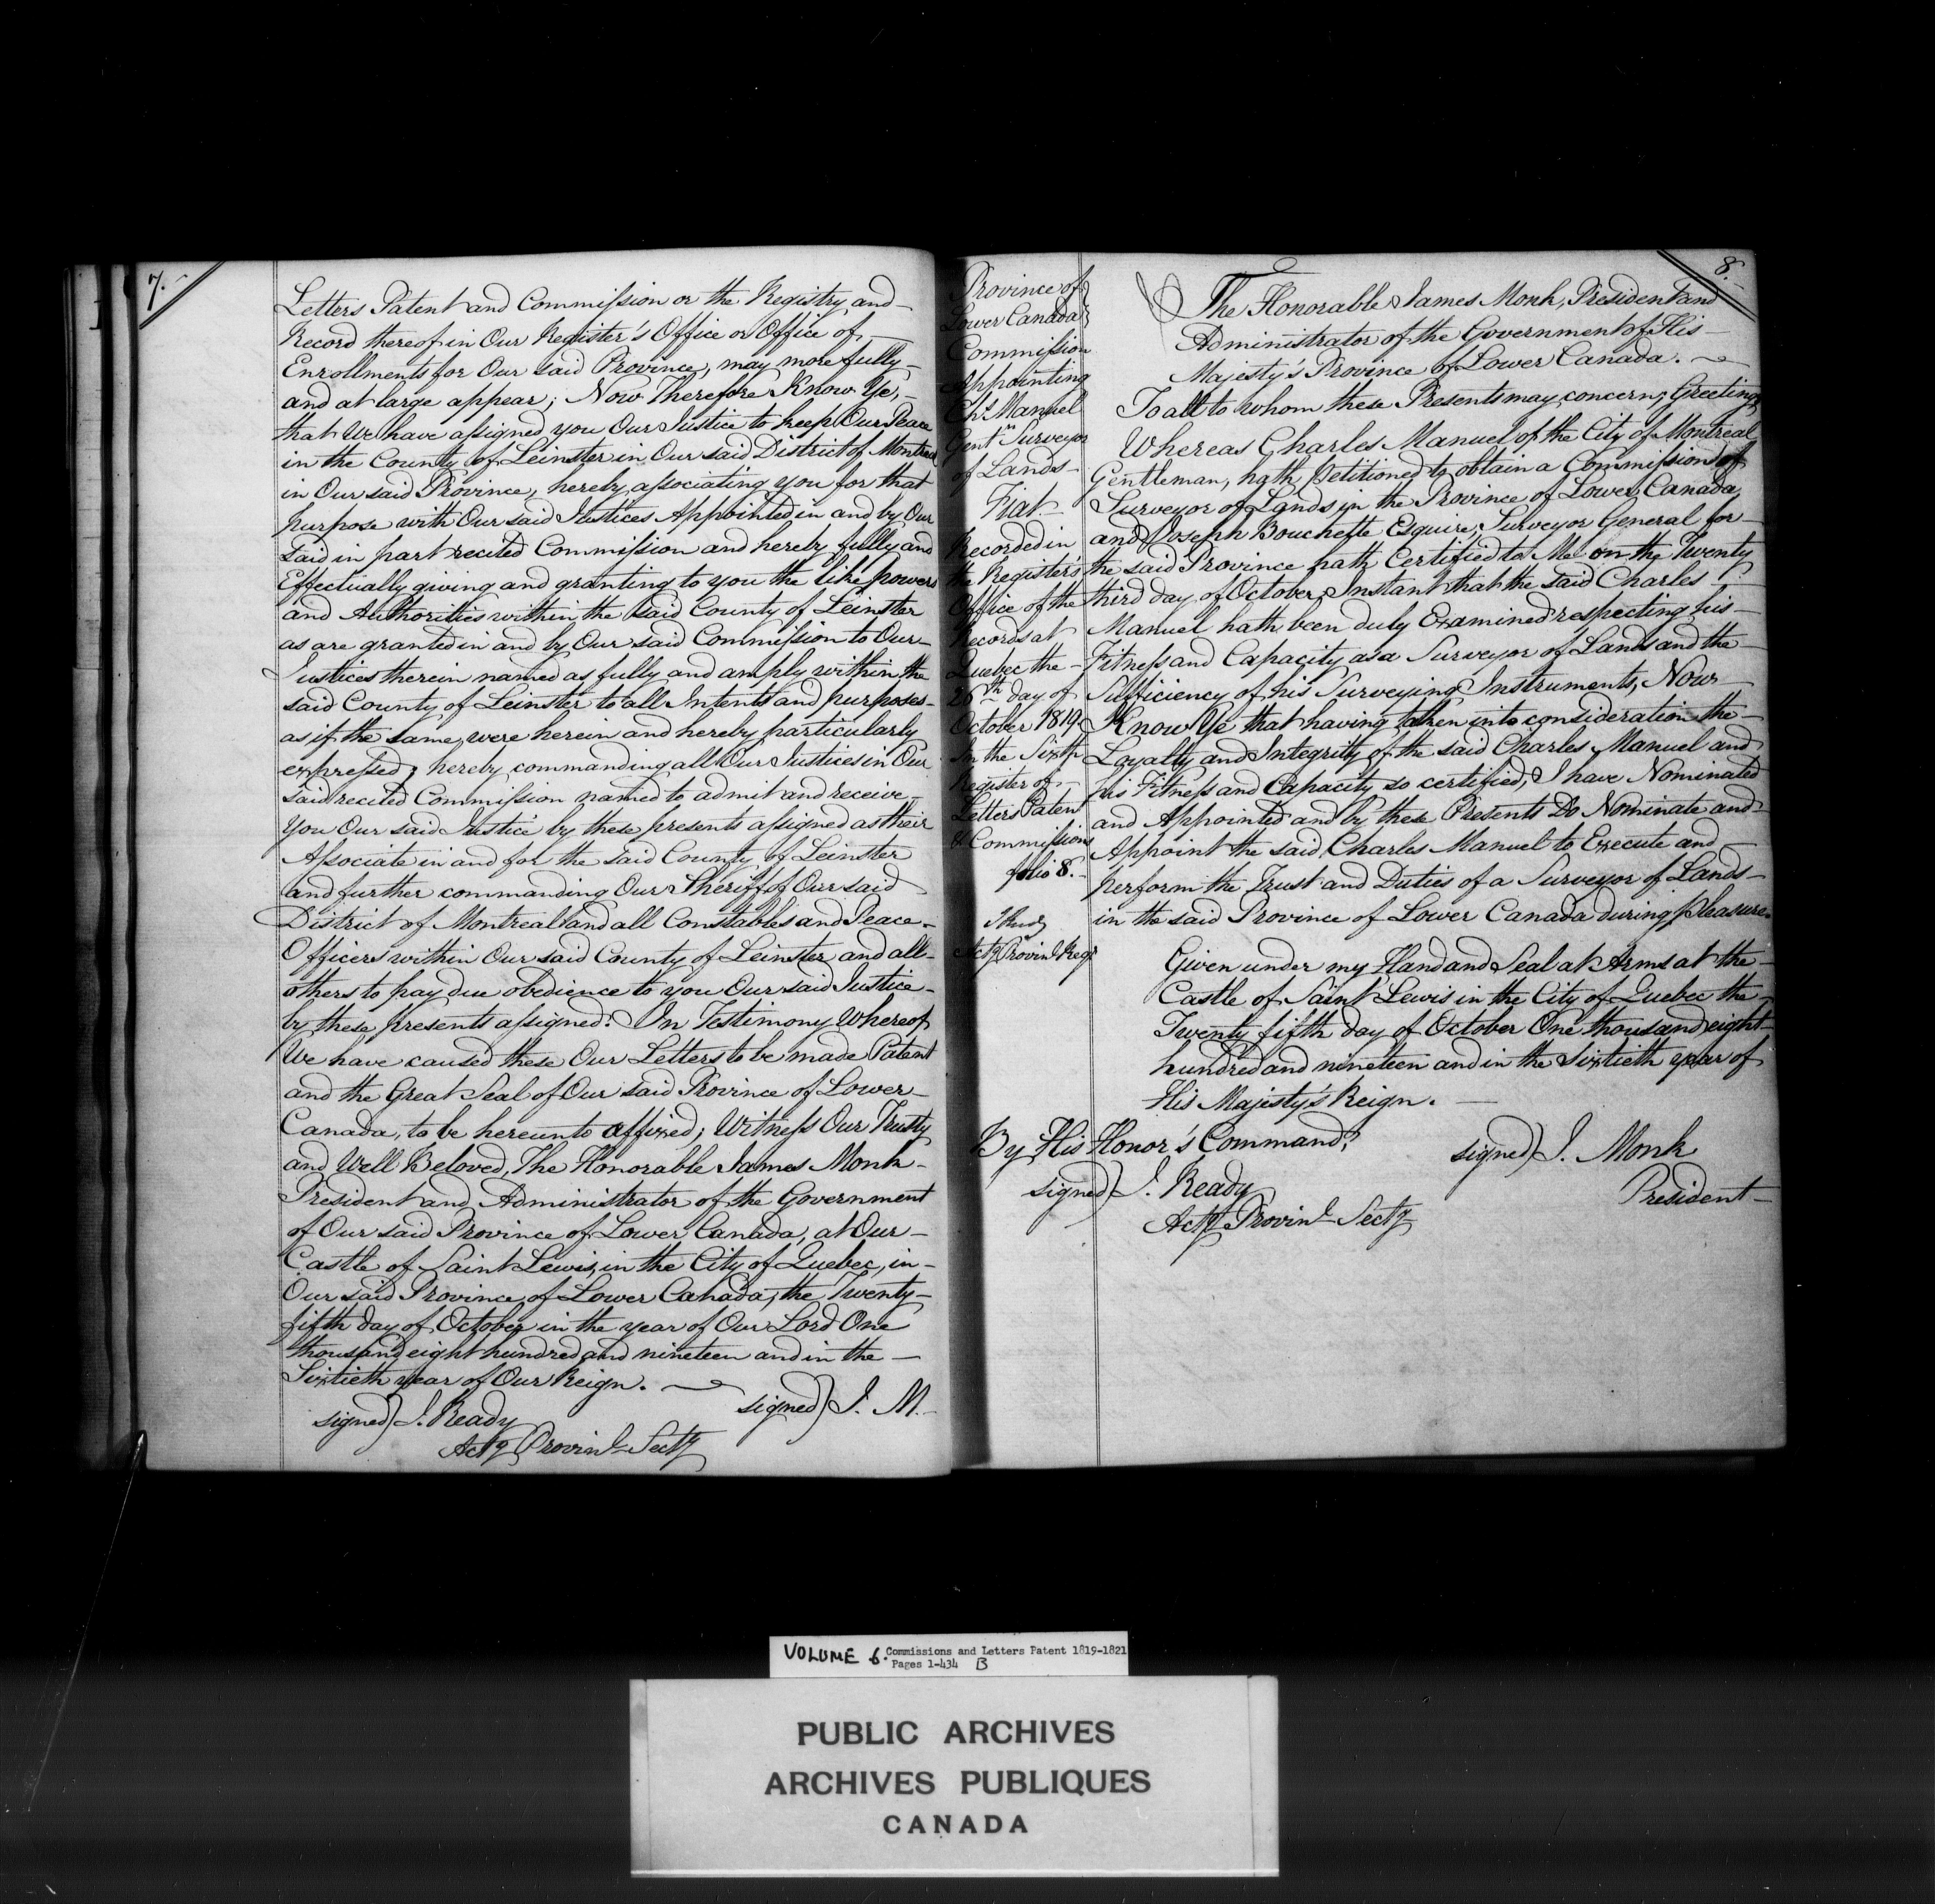 7.
Letters Patent and Commission or the Registry and
Record thereof in Our Register's Office or Office of
Enrollments for Our said Province, may more fully
and at large appear; Now Therefore Know Ye,
that We have assigned you Our Justice to keep Our Peace
in the County of Leinster in Our said District of Montreal
in Our said Province, hereby associating you for that
purpose with Our said Justices Appointed in and by Our
said in part recited Commission and hereby fully and
Effectually giving and granting to you the like powers
and Authorities within the said County of Leinster
as are granted in and by Our said Commission to Our
Justices therein named as fully and amply within the
said County of Leinster to all Intents and purposes
as if the same were herein and hereby particularly
expressed; hereby commanding all Our Justices in Our
said recited Commission named to admit and receive
You Our said Justice by these presents assigned as their
Associate in and for the said County of Leinster
and further commanding Our Sheriff of Our said
District of Montreal and all Constables and Peace
Officers within Our said County of Leinster and all
others to pay due obedience to you Our said Justice
by these presents assigned: In Testimony Whereof
We have caused these Our Letters to be made Patent
and the Great Seal of Our said Province of Lower
Canada, to be hereunto affixed; Witness Our Trusty
and Well Beloved The Honorable James Monk
President and Administrator of the Government
of Our said Province of Lower Canada, at Our
Castle of Saint Lewis, in the City of Quebec, in
Our said Province of Lower Canada, the Twenty
fifth day of October in the year of Our Lord One
thousand eight hundred and nineteen and in the
Sixtieth year of Our Reign.
signed) J. M.
signed) J. Ready
Actg Provinl Secty
8.
Province of
Lower Canada
Commission
Appointing
Chs Manuel
Gentn Surveyor
of Lands
Fiat.
Recorded in
the Register's
Office of the
Records at
Quebec the
26th day of
October 1819
In the Sixth
Register of
Letters Patent
& Commissions
folio 8.
J Ready
Actg Provinl Regr
The Honorable James Monk, President and
Administrator of the Government of His
Majesty's Province of Lower Canada.
To all to whom these Presents may concern, Greeting,
Whereas Charles Manuel of the City of Montreal
Gentleman, hath Petitioned to obtain a Commission of
Surveyor of Lands in the Province of Lower Canada,
and Joseph Bouchette Esquire, Surveyor General for
the said Province hath Certified to Me on the Twenty
third day of October, Instant that the said Charles
Manuel hath been duly Examined respecting his
Fitness and Capacity as a Surveyor of Lands and the
Sufficiency of his Surveying Instruments, Now
Know Ye that having taken into consideration the
Loyalty and Integrity of the said Charles Manuel and
his Fitness and Capacity so certified, I have Nominated
and Appointed and by these Presents Do Nominate and
Appoint the said Charles Manuel to Execute and
perform the Trust and Duties of a Surveyor of Lands
in the said Province of Lower Canada during pleasure.
Given under my Hand and Seal at Arms at the
Castle of Saint Lewis in the City of Quebec the
Twenty fifth day of October One thousand eight
hundred and nineteen and in the Sixtieth year of
His Majesty's Reign.
By His Honor's Command,
signed) J. Monk
President
signed) J. Ready
Actg Provinl Secty
VOLUME 6. Commissions and Letters Patent 1819-1821
Pages 1-434 B
PUBLIC ARCHIVES
ARCHIVES PUBLIQUES
CANADA